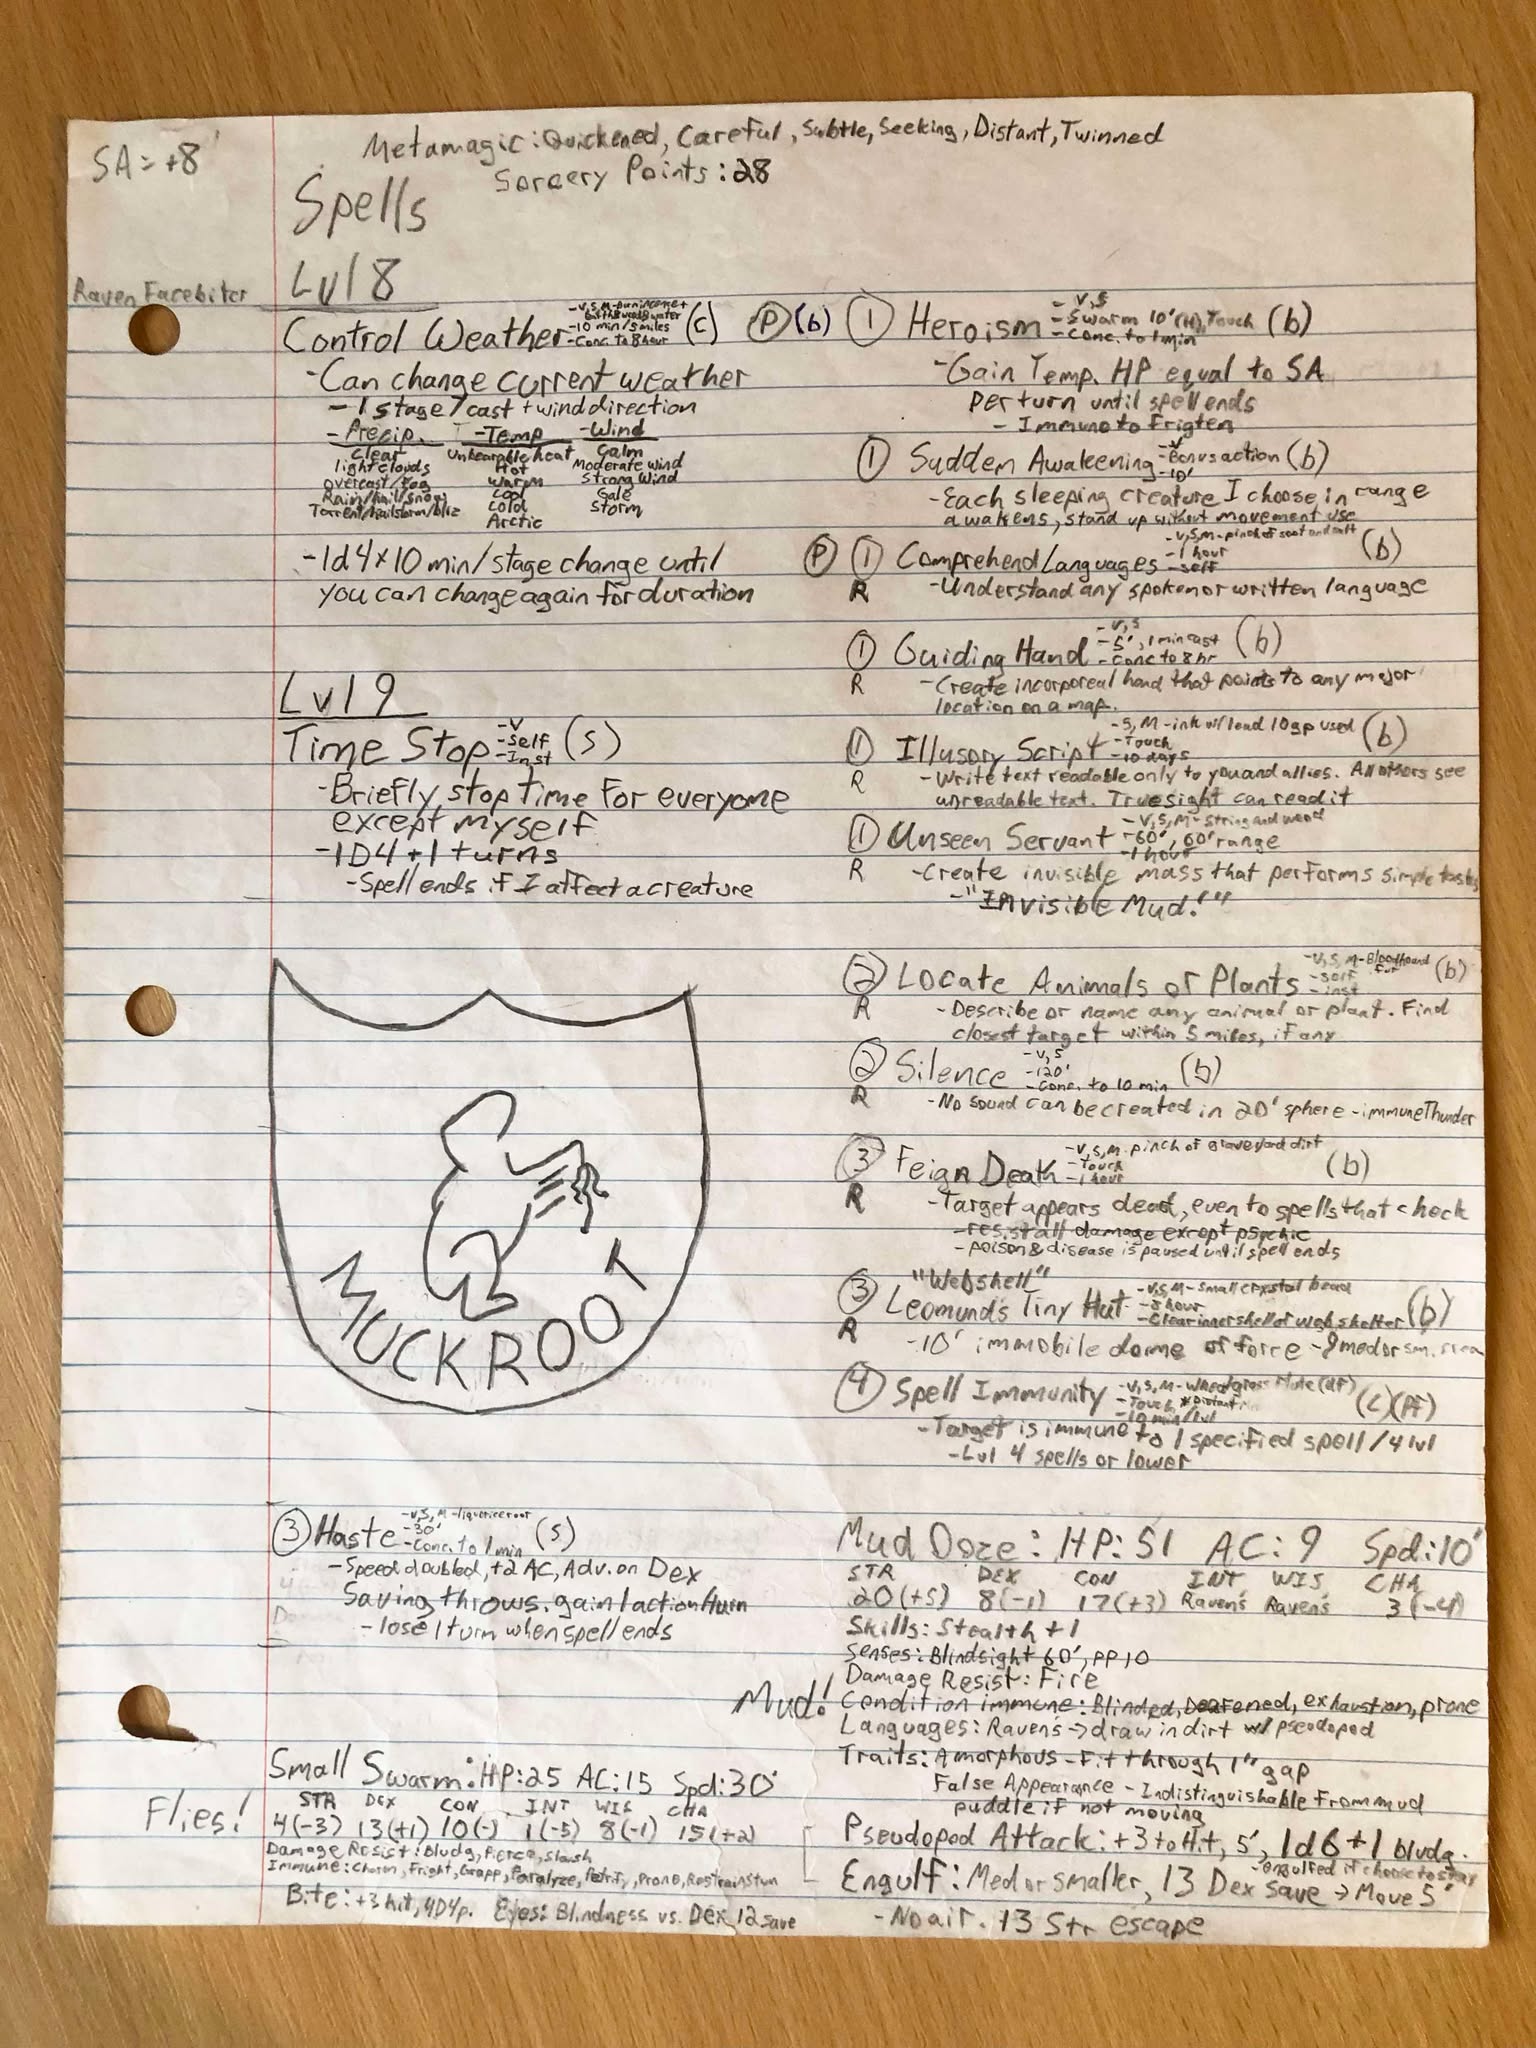 SA = +8
Metamagic: Quickened, Careful, Subtle, Seeking, Distant, Twinned
Sorcery Points: 28
Spells
Raven Facebiter
Lvl 8
Control Weather
-10 min/5 miles
-Conc. to 8 hour
(c) (P) (b)
-Can change current weather
-1 stage/cast + wind direction
-Precip. -Temp -Wind
Clear Unbearable heat Calm
light clouds Hot Moderate wind
overcast/fog Warm Strong Wind
Rain/hail/snow Cool Gale
Torrent/hailstorm/bliz Cold Storm
Arctic
-1d4x10 min/stage change until
you can change again for duration
Lvl 9
Time Stop (S)
-V
-Self
-Inst
-Briefly stop time for everyone
except myself
-1D4+1 turns
-Spell ends if I affect a creature
MUCKROOT
(3) Haste (S)
-V, S, M-liquorice root
-30'
-Conc. to 1 min
-Speed doubled, +2 AC, Adv. on Dex
Saving throws, gain 1 action/turn
-lose 1 turn when spell ends
Flies!
Small Swarm: HP:25 AC:15 Spd:30'
STR DEX CON INT WIS CHA
4(-3) 13(+1) 10(-) 1(-5) 8(-1) 15(+2)
Damage Resist: Bludg, Pierce, Slash
Immune: Charm, Fright, Grapp, Paralyze, Petrify, Prone, Restrain, Stun
Bite: +3 hit, 4D4p. Eyes: Blindness vs. Dex 12 save
(1) Heroism (b)
-V, S
-Swarm 10' (H), Touch
-Conc. to 1 min
-Gain Temp. HP equal to SA
per turn until spell ends
-Immune to Frigten
(1) Sudden Awakening (b)
-V
-Bonus action
-10'
-Each sleeping creature I choose in range
awakens, stand up without movement use
(P) (1) Comprehend Languages (b)
-V, S, M-pinch of soot and salt
-1 hour
-self
R -Understand any spoken or written language
(1) Guiding Hand (b)
-V, S
-5', 1 min cast
-Conc to 8 hr
R -Create incorporeal hand that points to any major
location on a map.
(1) Illusory Script (b)
-S, M-ink w/ lead 10gp used
-Touch
-10 days
R -Write text readable only to you and allies. All others see
unreadable text. Truesight can read it
(1) Unseen Servant
-V, S, M-String and wood
-60', 60' range
-1 hour
R -Create invisible mass that performs simple tasks
-"Invisible Mud!"
(2) Locate Animals or Plants (b)
-V, S, M-Bloodhound fur
-self
-inst
R -Describe or name any animal or plant. Find
closest target within 5 miles, if any
(2) Silence (b)
-V, S
-120'
-Conc. to 10 min
R -No sound can be created in 20' sphere -immune Thunder
(3) Feign Death (b)
-V, S, M-pinch of graveyard dirt
-Touch
-1 hour
R -Target appears dead, even to spells that check
-resist all damage except psychic
-poison & disease is paused until spell ends
"Webshell"
(3) Leomund's Tiny Hut (b)
-V, S, M-Small crystal bead
-8 hour
-Clear inner shell of web shelter
R -10' immobile dome of force -9 med or sm.
(4) Spell Immunity (c)(Pf)
-Touch, *Distant
-10 min/lvl
-Target is immune to 1 specified spell/4 lvl
-Lvl 4 spells or lower
Mud Ooze: HP:51 AC:9 Spd:10'
STR DEX CON INT WIS CHA
20(+5) 8(-1) 17(+3) Raven's Raven's 3(-4)
Skills: Stealth +1
Senses: Blindsight 60', PP10
Damage Resist: Fire
Mud! Condition immune: Blinded, Deafened, exhaustion, prone
Languages: Raven's → draw in dirt w/ pseudopod
Traits: Amorphous - Fit through 1" gap
False Appearance - Indistinguishable from mud
puddle if not moving
Pseudopod Attack: +3 to Hit, 5', 1d6+1 bludg.
-engulfed if choose to stay
Engulf: Med or smaller, 13 Dex save → Move 5'
-No air. 13 Str escape